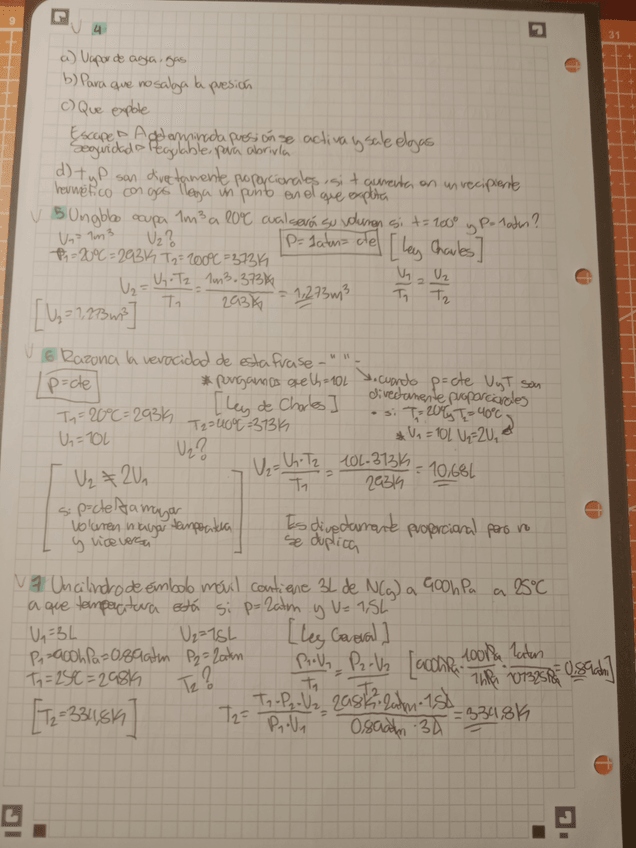 9
31
V 4
a) Vapor de agua. gas
b) Para que no salga la presión
c) Que explote
Escape → A determinada presión se activa y sale el gas
Seguridad → regulable, para abrirla
d) T y P son directamente proporcionales, si t aumenta en un recipiente
hermético con gas llega un punto en el que explota
V 5 Un globo ocupa 1m³ a 20ºC cual será su volumen si t=100º y P=1atm?
V₁=1m³ V₂? P=1atm=cte [Ley Charles]
T₁=20ºC=293K T₂=100ºC=373K
V₁/T₁ = V₂/T₂
V₂ = V₁·T₂/T₁ = 1m³·373K/293K = 1,273m³
[V₂=1,273m³]
V 6 Razona la veracidad de esta frase - " " -
P=cte * pongamos que V₁=10L → · cuando p=cte V y T son
directamente proporcionales
[Ley de Charles] · si T₁=20ºC y T₂=40ºC
T₁=20ºC=293K T₂=40ºC=313K
* V₁=10L V₂=2V₁
V₁=10L V₂?
V₂ ≠ 2V₁
V₂ = V₁·T₂/T₁ = 10L·313K/293K = 10,68L
si p=cte a mayor
volumen mayor temperatura
y viceversa
Es directamente proporcional pero no
se duplica
V 7 Un cilindro de émbolo móvil contiene 3L de N(g) a 900hPa a 25ºC
a que temperatura está si p=2atm y V=1,5L
V₁=3L V₂=1,5L [Ley General]
P₁=900hPa=0,89atm P₂=2atm P₁·V₁/T₁ = P₂·V₂/T₂ [900hPa·100Pa/1hPa·1atm/101325Pa=0,89atm]
T₁=25ºC=298K T₂?
[T₂=334,8K] T₂ = T₁·P₂·V₂/P₁·V₁ = 298K·2atm·1,5L/0,89atm·3L = 334,8K